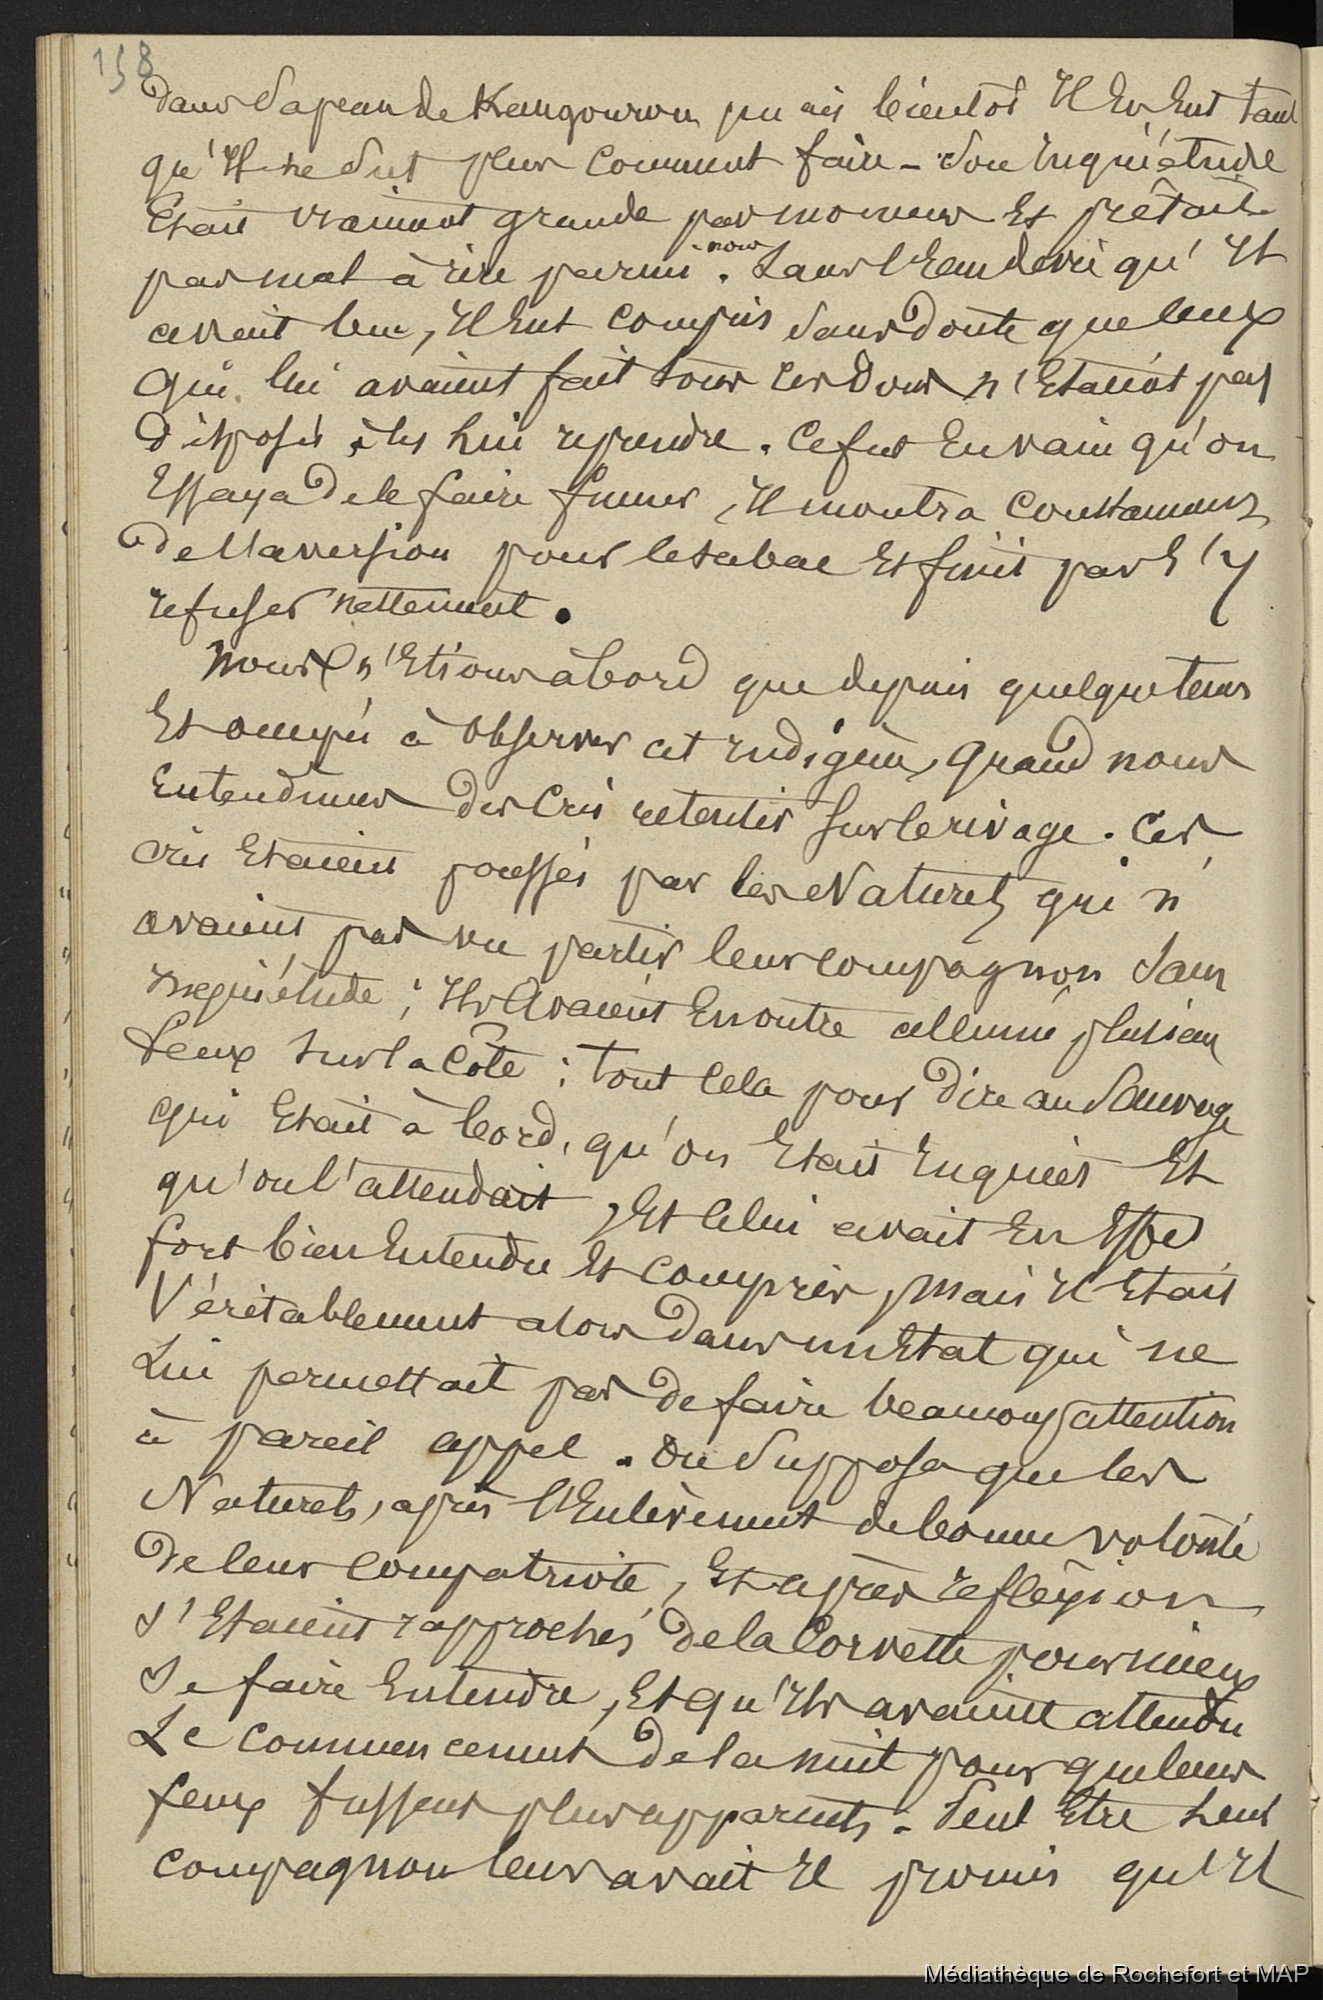 158
dans sa peau de Kangourou, puis bientôt Il En Eut tant
qu'Il ne sut plus comment faire - Son Inquiétude
Etait vraiment grande par momens Et prêtait
pas mal à rire parmi nous. Sans l'Eau de vie qu'Il
avait bu, Il Eut compris sans doute que ceux
qui lui avaient fait tous ces dons n'Etaient pas
disposés à les lui reprendre. Ce fut En vain qu'on
Essaya de le faire fumer, Il montra constamment
de l'aversion pour le tabac Et finit par s'y
refuser nettement.
Nous n'Etions à bord que depuis quelque tems
Et occupés à observer cet Indigène, quand nous
Entendimes des cris retentir sur le rivage. Ces
cris Etaient poussés par les Naturels qui n'
avaient pas vu partir leur compagnon sans
Inquiétude ; Ils Avaient En outre allumé plusieurs
feux sur la Côte : tout cela pour dire au Sauvage
qui Etait à bord, qu'on Etait Inquiet Et
qu'on l'attendait, Et celui avait En Effet
fort bien Entendu Et compris, mais Il Etait
Véritablement alors dans un Etat qui ne
Lui permettait pas de faire beaucoup attention
à pareil appel. On supposa que les
Naturels, après l'Enlèvement de bonne volonté
de leur compatriote, Et après reflexion
s'Etaient rapprochés de la Corvette pour mieux
se faire Entendre, Et qu'Ils avaient attendu
Le commencement de la nuit pour que leurs
feux fussent plus apparents. Peut Etre Leur
compagnon leur avait Il promis qu'Il
Médiathèque de Rochefort et MAP